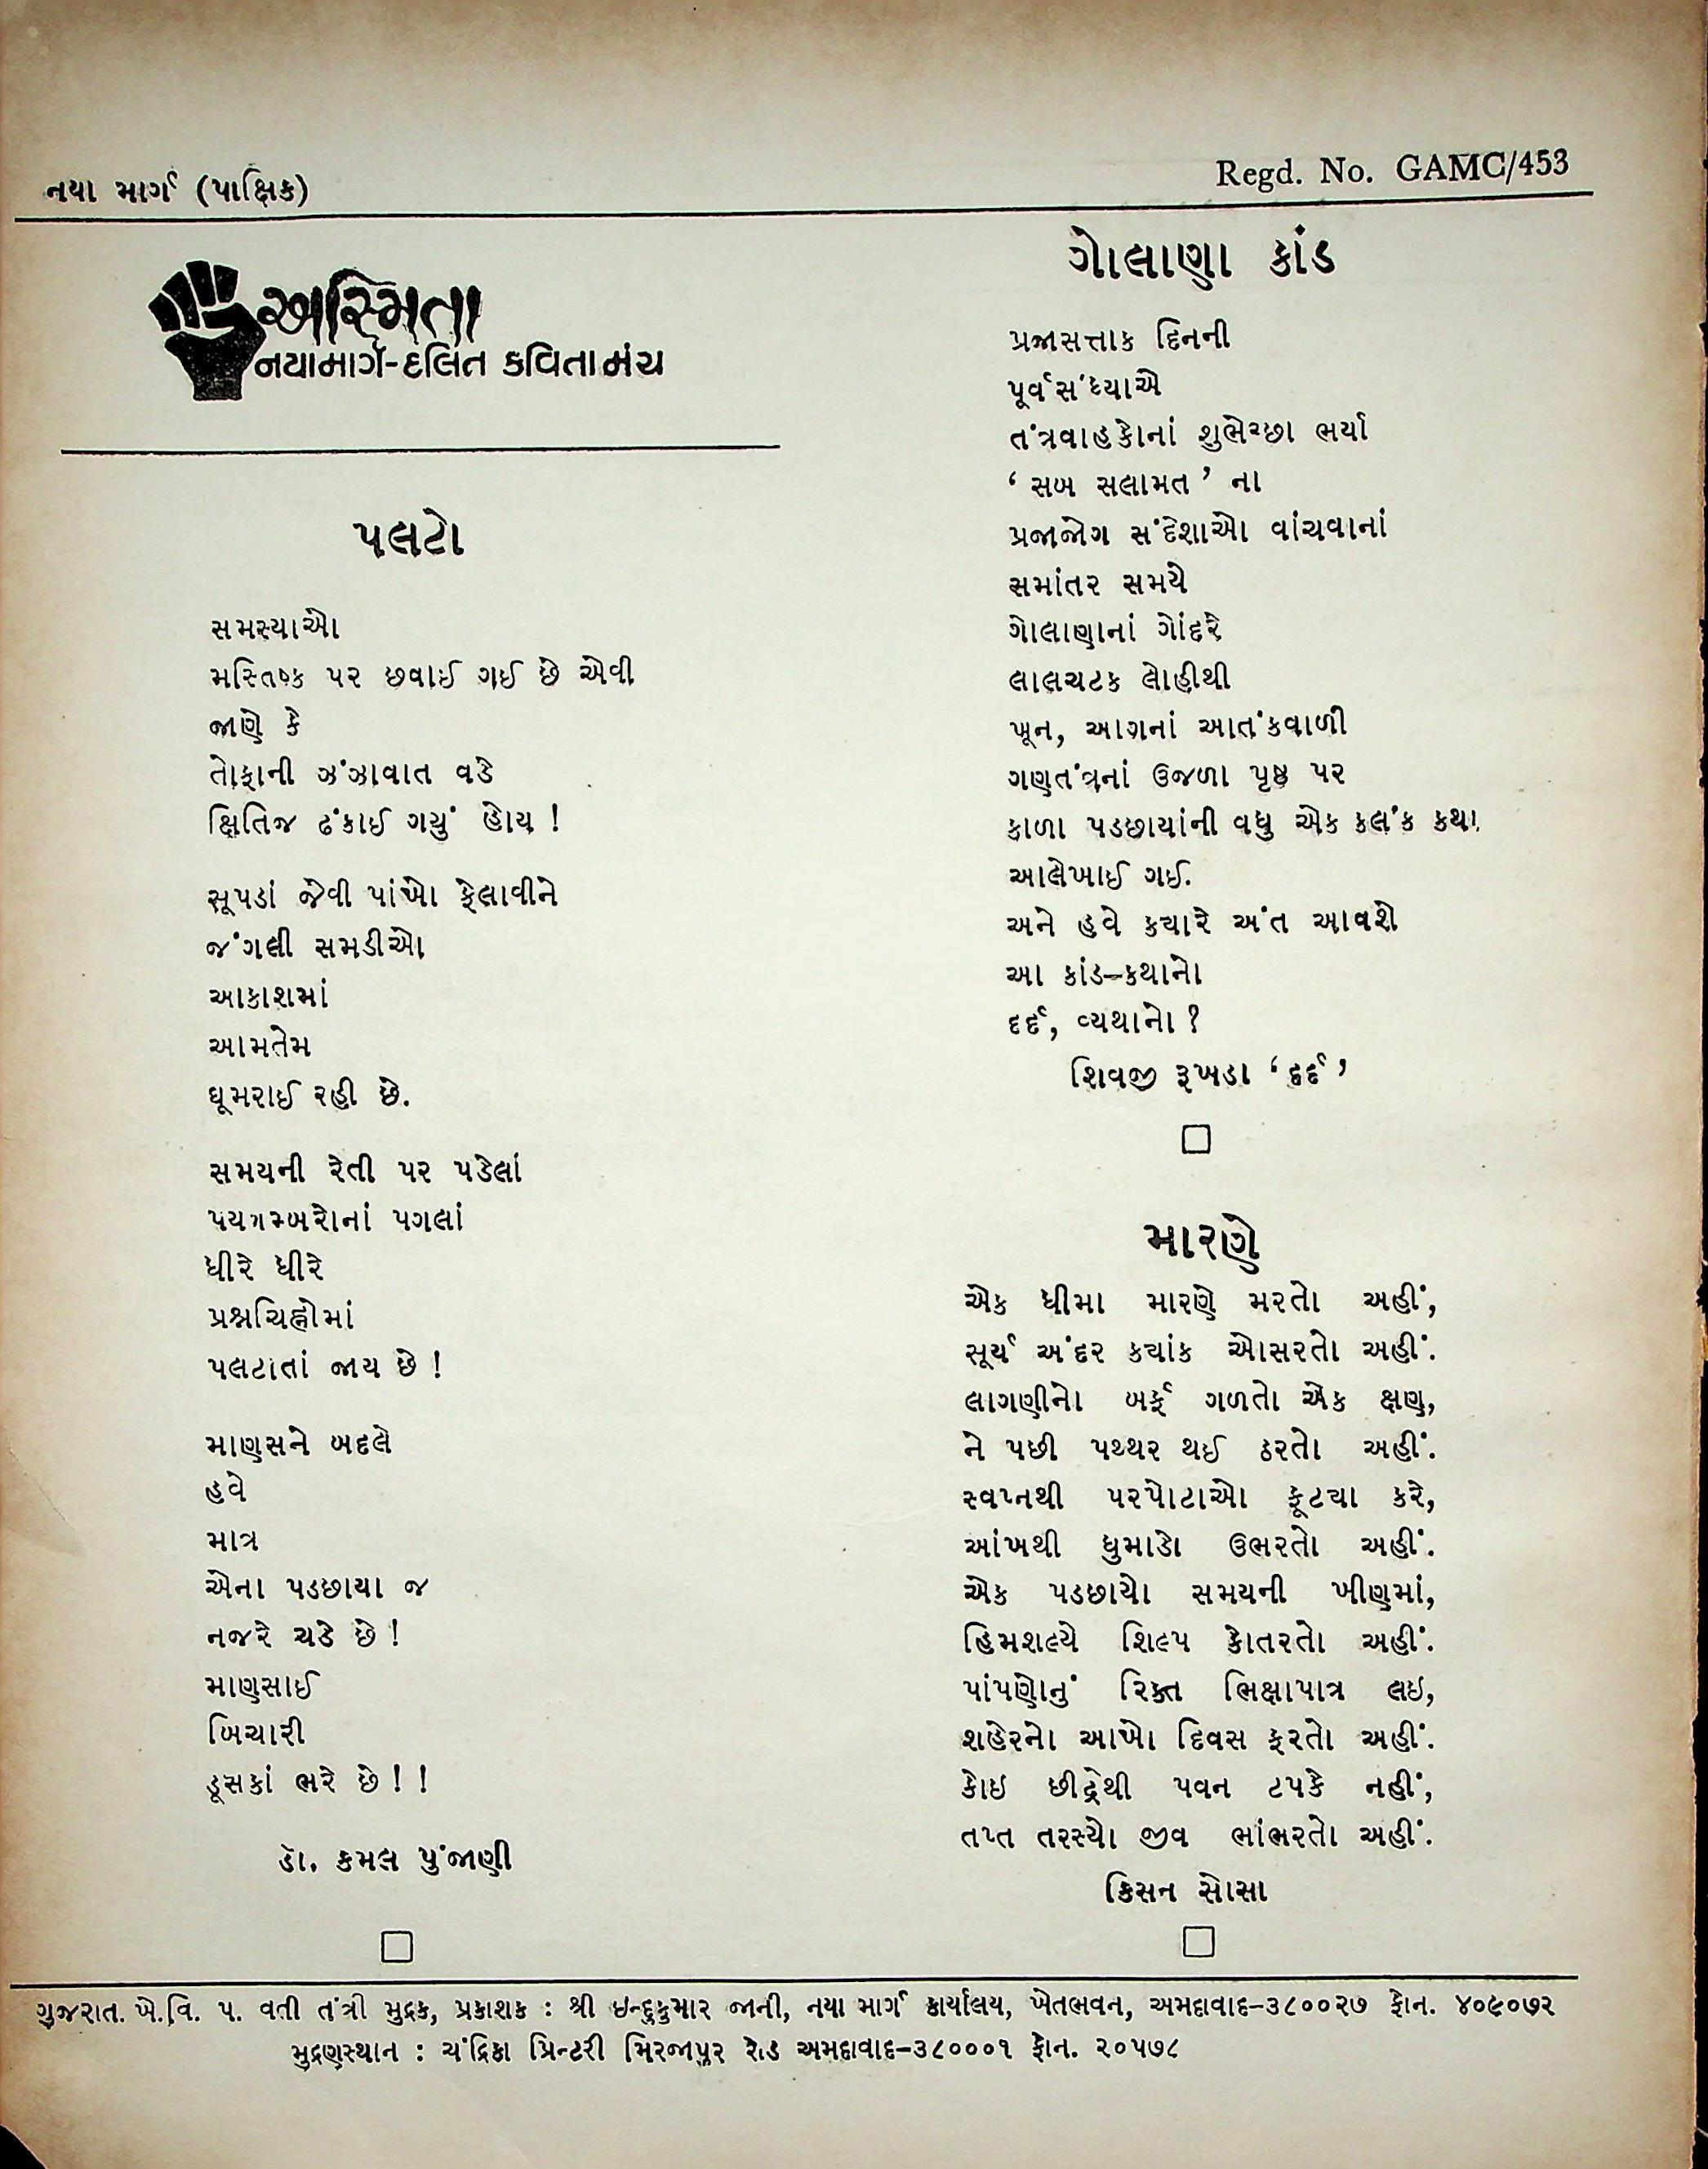 નયા માર્ગ (પાક્ષિક)
Regd. No. GAMC/453
અસ્મિતા
નયામાર્ગ-દલિત કવિતામંચ
પલટો
સમસ્યાઓ
મસ્તિષ્ક પર છવાઈ ગઈ છે એવી
જાણે કે
તોફાની ઝંઝાવાત વડે
ક્ષિતિજ ઢંકાઈ ગયું હોય !
સૂપડાં જેવી પાંખો ફેલાવીને
જંગલી સમડીઓ
આકાશમાં
આમતેમ
ઘૂમરાઈ રહી છે.
સમયની રેતી પર પડેલાં
પયગમ્બરોનાં પગલાં
ધીરે ધીરે
પ્રશ્નચિહ્નોમાં
પલટાતાં જાય છે !
માણસને બદલે
હવે
માત્ર
એના પડછાયા જ
નજરે ચડે છે !
માણસાઈ
બિચારી
ડૂસકાં ભરે છે ! !
ડૉ. કમલ પુંજાણી
ગોલાણા કાંડ
પ્રજાસત્તાક દિનની
પૂર્વસંધ્યાએ
તંત્રવાહકોનાં શુભેચ્છા ભર્યા
‘ સબ સલામત ’ ના
પ્રજાજોગ સંદેશાઓ વાંચવાનાં
સમાંતર સમયે
ગોલાણાનાં ગોંદરે
લાલચટક લોહીથી
ખૂન, આગનાં આતંકવાળી
ગણતંત્રનાં ઉજળા પૃષ્ઠ પર
કાળા પડછાયાંની વધુ એક કલંક કથા
આલેખાઈ ગઈ.
અને હવે કયારે અંત આવશે
આ કાંડ–કથાનો
દર્દ, વ્યથાનો ?
શિવજી રૂખડા ‘ દર્દ ’
મારણે
એક ધીમા મારણે મરતો અહીં,
સૂર્ય અંદર કયાંક ઓસરતો અહીં.
લાગણીનો બર્ફ ગળતો એક ક્ષણ,
ને પછી પથ્થર થઈ ઠરતો અહીં.
સ્વપ્નથી પરપોટાઓ ફૂટયા કરે,
આંખથી ધુમાડો ઉભરતો અહીં.
એક પડછાયો સમયની ખીણમાં,
હિમશલ્યે શિલ્પ કોતરતો અહીં.
પાંપણોનું રિક્ત ભિક્ષાપાત્ર લઇ,
શહેરનો આખો દિવસ ફરતો અહીં.
કોઇ છીદ્રેથી પવન ટપકે નહીં,
તપ્ત તરસ્યો જીવ ભાંભરતો અહીં.
કિસન સોસા
ગુજરાત. ખે.વિ. પ. વતી તંત્રી મુદ્રક, પ્રકાશક : શ્રી ઇન્દુકુમાર જાની, નયા માર્ગ કાર્યાલય, ખેતભવન, અમદાવાદ–૩૮૦૦૨૭ ફોન. ૪૦૯૦૭૨
મુદ્રણસ્થાન : ચંદ્રિકા પ્રિન્ટરી મિરજાપુર રોડ અમદાવાદ–૩૮૦૦૦૧ ફોન. ૨૦૫૭૮